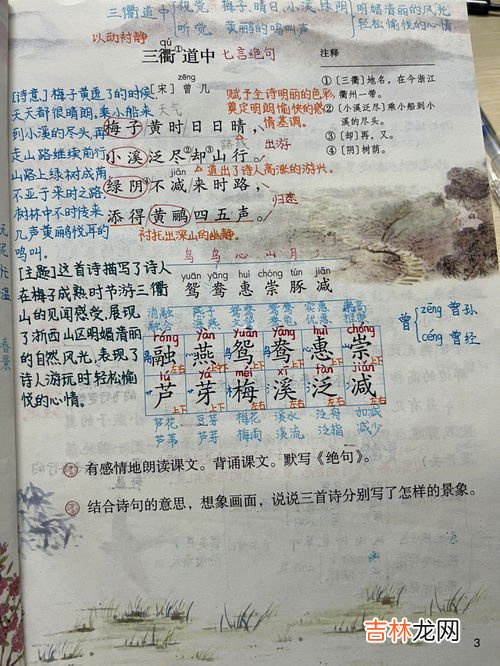 三衢道中
视觉 梅子、晴日、小溪、绿阴 明媚清丽的风光
听觉 黄鹂的鸣叫声 轻松愉悦的心情
以动衬静
qú
三衢①道中 七言绝句
zēng
[宋] 曾 几
注释
①〔三衢〕地名，在今浙江
衢州一带。
②〔小溪泛尽〕乘小船到小
溪的尽头。
③〔却〕再，又。
④〔阴〕树荫。
[诗意]梅子黄透了的时候，
天天都很晴朗。乘小船来
到小溪的尽头，再
走山路继续前行。
山路上绿树成荫
不亚于来时之路，
树林中不时传来
几声黄鹂悦耳的
鸣叫。
天气
赋予全诗明丽的色彩，
奠定明朗愉快的感
情基调。
梅子黄时日日晴，
路线 出游
小溪泛尽②却③山行。
道出了诗人高涨的游兴
绿阴④不减来时路，
归途
添得黄鹂四五声。
衬托出深山的幽静。
鸟 鸟 心 山 月
yuān yāng huì chóng tún jiǎn
鸳 鸯 惠 崇 豚 减
[主题]这首诗描写了诗人
在梅子成熟时节游三衢
山的见闻感受，展现
了浙西山区明媚清丽
的自然风光，表现了
诗人游玩时轻松愉
悦的心情。
曾 zēng 曾孙
céng 曾经
消融 燕子 实惠 崇高
róng yàn yuān yāng huì chóng
融 燕 鸳 鸯 惠 崇
lú yá méi xī fàn jiǎn
芦 芽 梅 溪 泛 减
芦花 豆芽 梅花 溪水 泛舟 加减
芦苇 芽 梅雨 溪流 泛指 减少
有感情地朗读课文。背诵课文。默写《绝句》。
结合诗句的意思，想象画面，说说三首诗分别写了怎样的景象。
3
吉林龙网